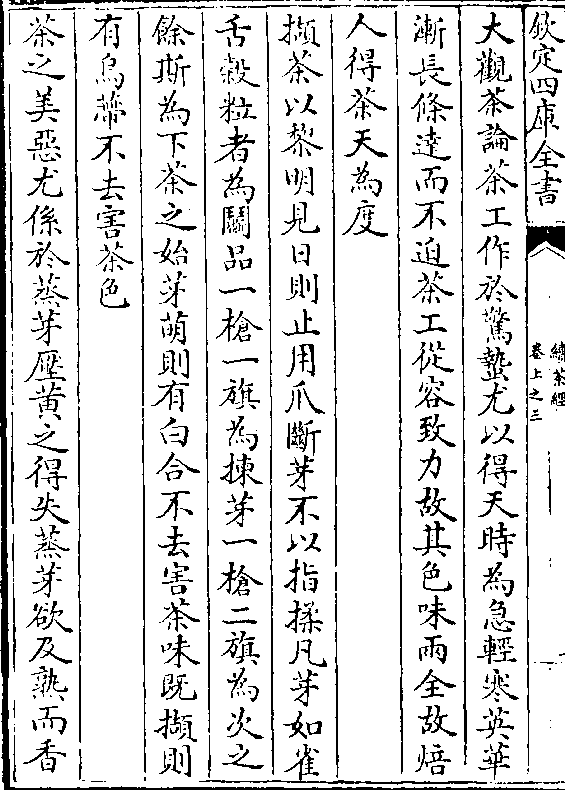 欽定四庫全書
續茶經
卷上之三
大觀茶論茶工作於驚蟄尤以得天時為急輕寒英華
漸長條達而不迫茶工從容致力故其色味兩全故焙
人得茶天為度
擷茶以黎明見日則止用爪斷芽不以指揉凡芽如雀
舌榖粒者為鬭品一槍一旗為揀芽一槍二旗為次之
餘斯為下茶之始芽萌則有白合不去害茶味既擷則
有烏蔕不去害茶色
茶之美惡尤係於蒸芽壓黄之得失蒸芽欲及熟而香